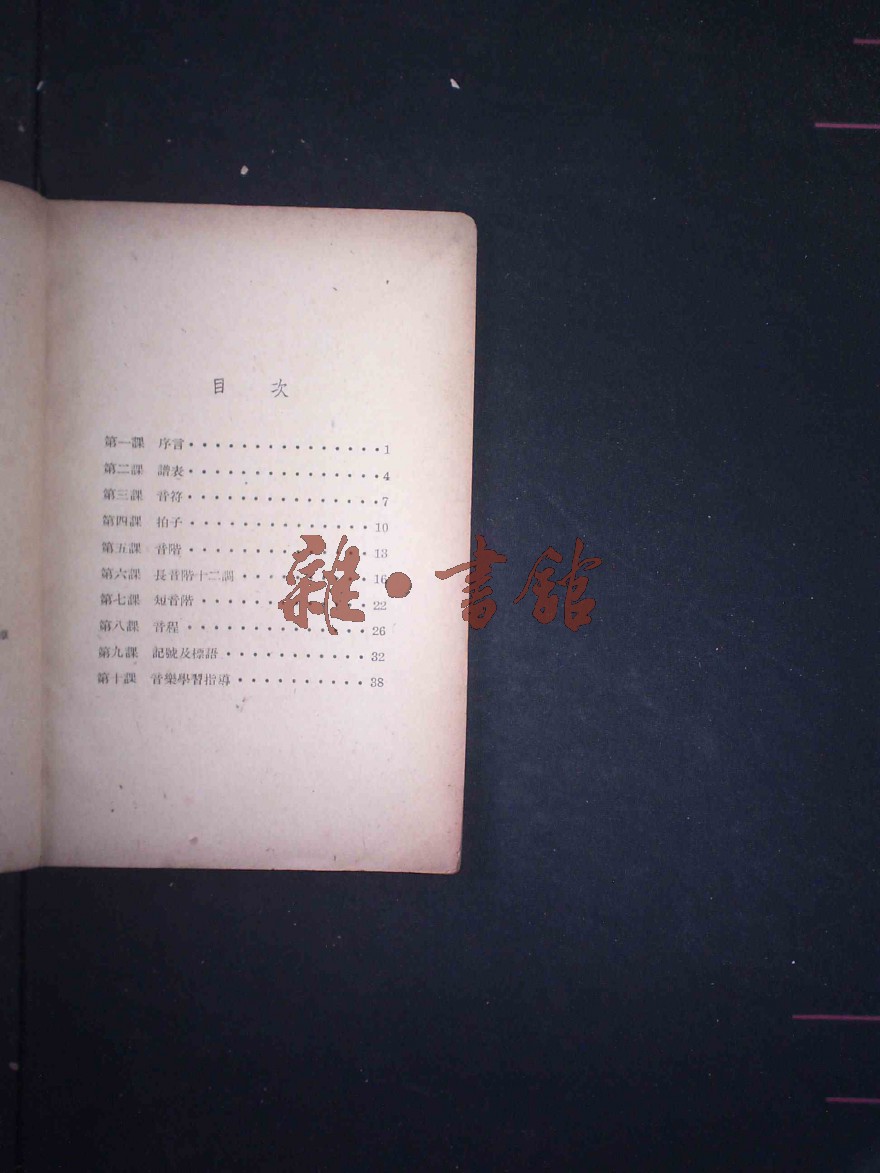 目 次
第一課 序言・・・・・・・・・・・・・・・1
第二課 譜表・・・・・・・・・・・・・・・4
第三課 音符・・・・・・・・・・・・・・・7
第四課 拍子・・・・・・・・・・・・・・10
第五課 音階・・・・・・・・・・・・・・13
第六課 長音階十二調・・・・・・・・・・16
第七課 短音階・・・・・・・・・・・・・22
第八課 音程・・・・・・・・・・・・・・26
第九課 記號及標語・・・・・・・・・・・32
第十課 音樂學習指導・・・・・・・・・・38
雜·書館